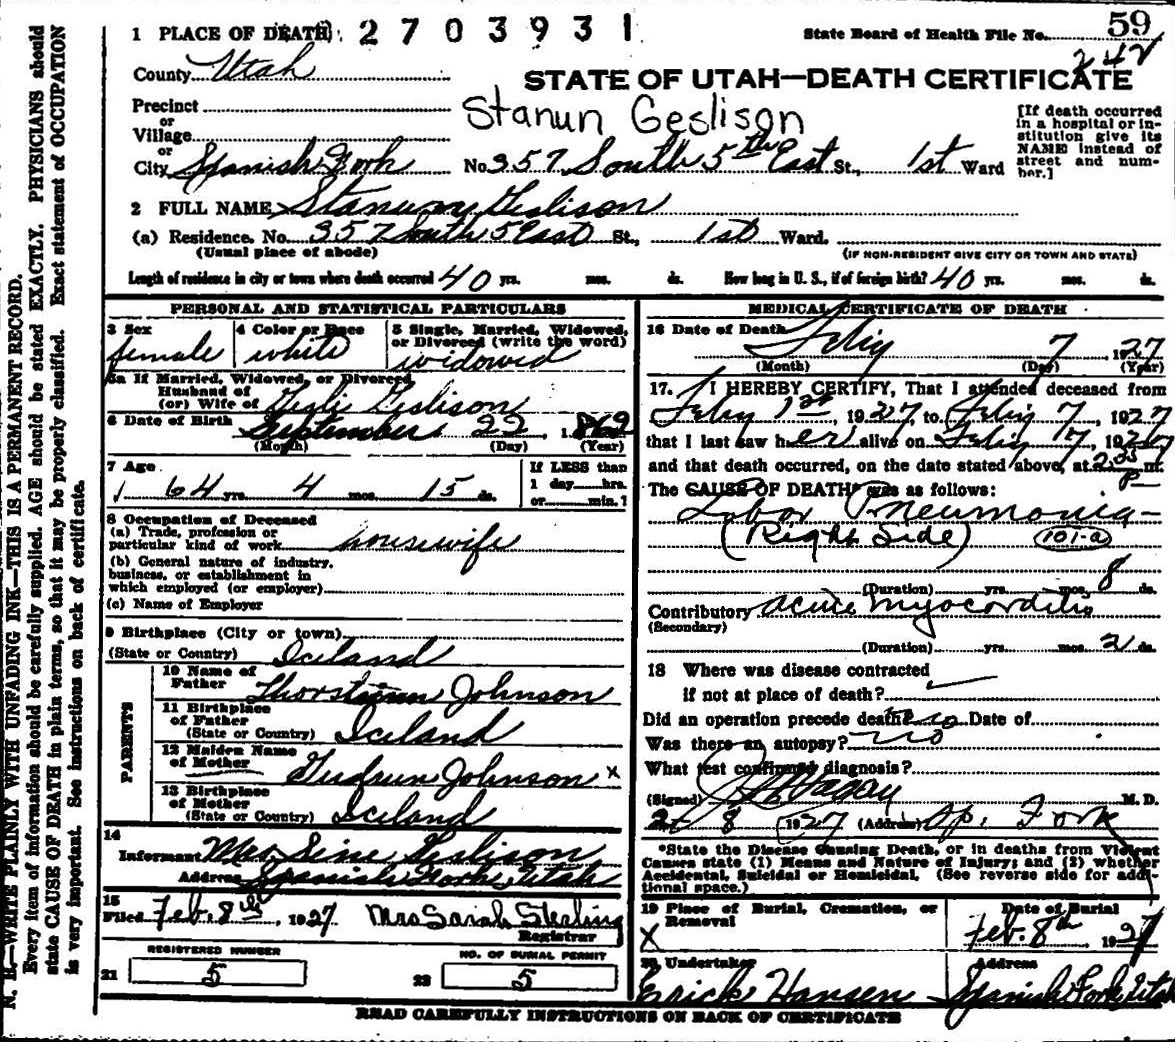 1 PLACE OF DEATH 2703931
State Board of Health File No. 59
242
County Utah
STATE OF UTAH—DEATH CERTIFICATE
Precinct
or
Village
Stanun Geslison
[If death occurred in a hospital or institution give its NAME instead of street and number.]
or
City Spanish Fork No. 357 South 5th East St., 1st Ward
2 FULL NAME Stanun Geslison
(a) Residence. No. 357 South 5 East St., 1st Ward.
(Usual place of abode) (IF NON-RESIDENT GIVE CITY OR TOWN AND STATE)
Length of residence in city or town where death occurred 40 yrs. mos. ds. How long in U. S., if of foreign birth? 40 yrs. mos. ds.
PERSONAL AND STATISTICAL PARTICULARS
3 Sex 4 Color or Race 5 Single, Married, Widowed, or Divorced (write the word)
female white widowed
5a If Married, Widowed, or Divorced
Husband of
(or) Wife of Gesli Geslison
6 Date of Birth September 22, 1862
(Month) (Day) (Year)
7 Age
64 yrs. 4 mos. 15 ds.
If LESS than
1 day hrs.
or min.?
8 Occupation of Deceased
(a) Trade, profession or
particular kind of work housewife
(b) General nature of industry,
business, or establishment in
which employed (or employer)
(c) Name of Employer
9 Birthplace (City or town)
(State or Country) Iceland
PARENTS
10 Name of
Father Thorstienn Johnson
11 Birthplace
of Father
(State or Country) Iceland
12 Maiden Name
of Mother Gudrun Johnson x
13 Birthplace
of Mother
(State or Country) Iceland
14
Informant Mrs Sine Geslison
Address Spanish Fork, Utah
15
Filed Feb. 8th, 1927 Mrs Sarah Sterling
Registrar
REGISTERED NUMBER NO. OF BURIAL PERMIT
21 5 22 5
MEDICAL CERTIFICATE OF DEATH
16 Date of Death
Feby 7, 1927
(Month) (Day) (Year)
17. I HEREBY CERTIFY, That I attended deceased from
Feby 1st, 1927, to Feby 7, 1927
that I last saw her alive on Feby 7, 1927
and that death occurred, on the date stated above, at 2:05 P m.
The CAUSE OF DEATH was as follows:
Lobar Pneumonia
(Right Side) 101-a
(Duration) yrs. mos. 8 ds.
Contributory acute myocarditis
(Secondary)
(Duration) yrs. mos. 2 ds.
18 Where was disease contracted
if not at place of death?
Did an operation precede death? no Date of
Was there an autopsy? no
What test confirmed diagnosis?
(Signed) Hagan M. D.
2t 8 1927 (Address) Sp. Fork
*State the Disease Causing Death, or in deaths from Violent
Causes state (1) Means and Nature of Injury; and (2) whether
Accidental, Suicidal or Homicidal. (See reverse side for additional space.)
19 Place of Burial, Cremation, or Removal Date of Burial
X Feb. 8th 1927
20 Undertaker Address
Erick Hansen Spanish Fork Utah
READ CAREFULLY INSTRUCTIONS ON BACK OF CERTIFICATE
N. B.—WRITE PLAINLY WITH UNFADING INK—THIS IS A PERMANENT RECORD.
Every item of information should be carefully supplied. AGE should be stated EXACTLY. PHYSICIANS should
state CAUSE OF DEATH in plain terms, so that it may be properly classified. Exact statement of OCCUPATION
is very important. See instructions on back of certificate.